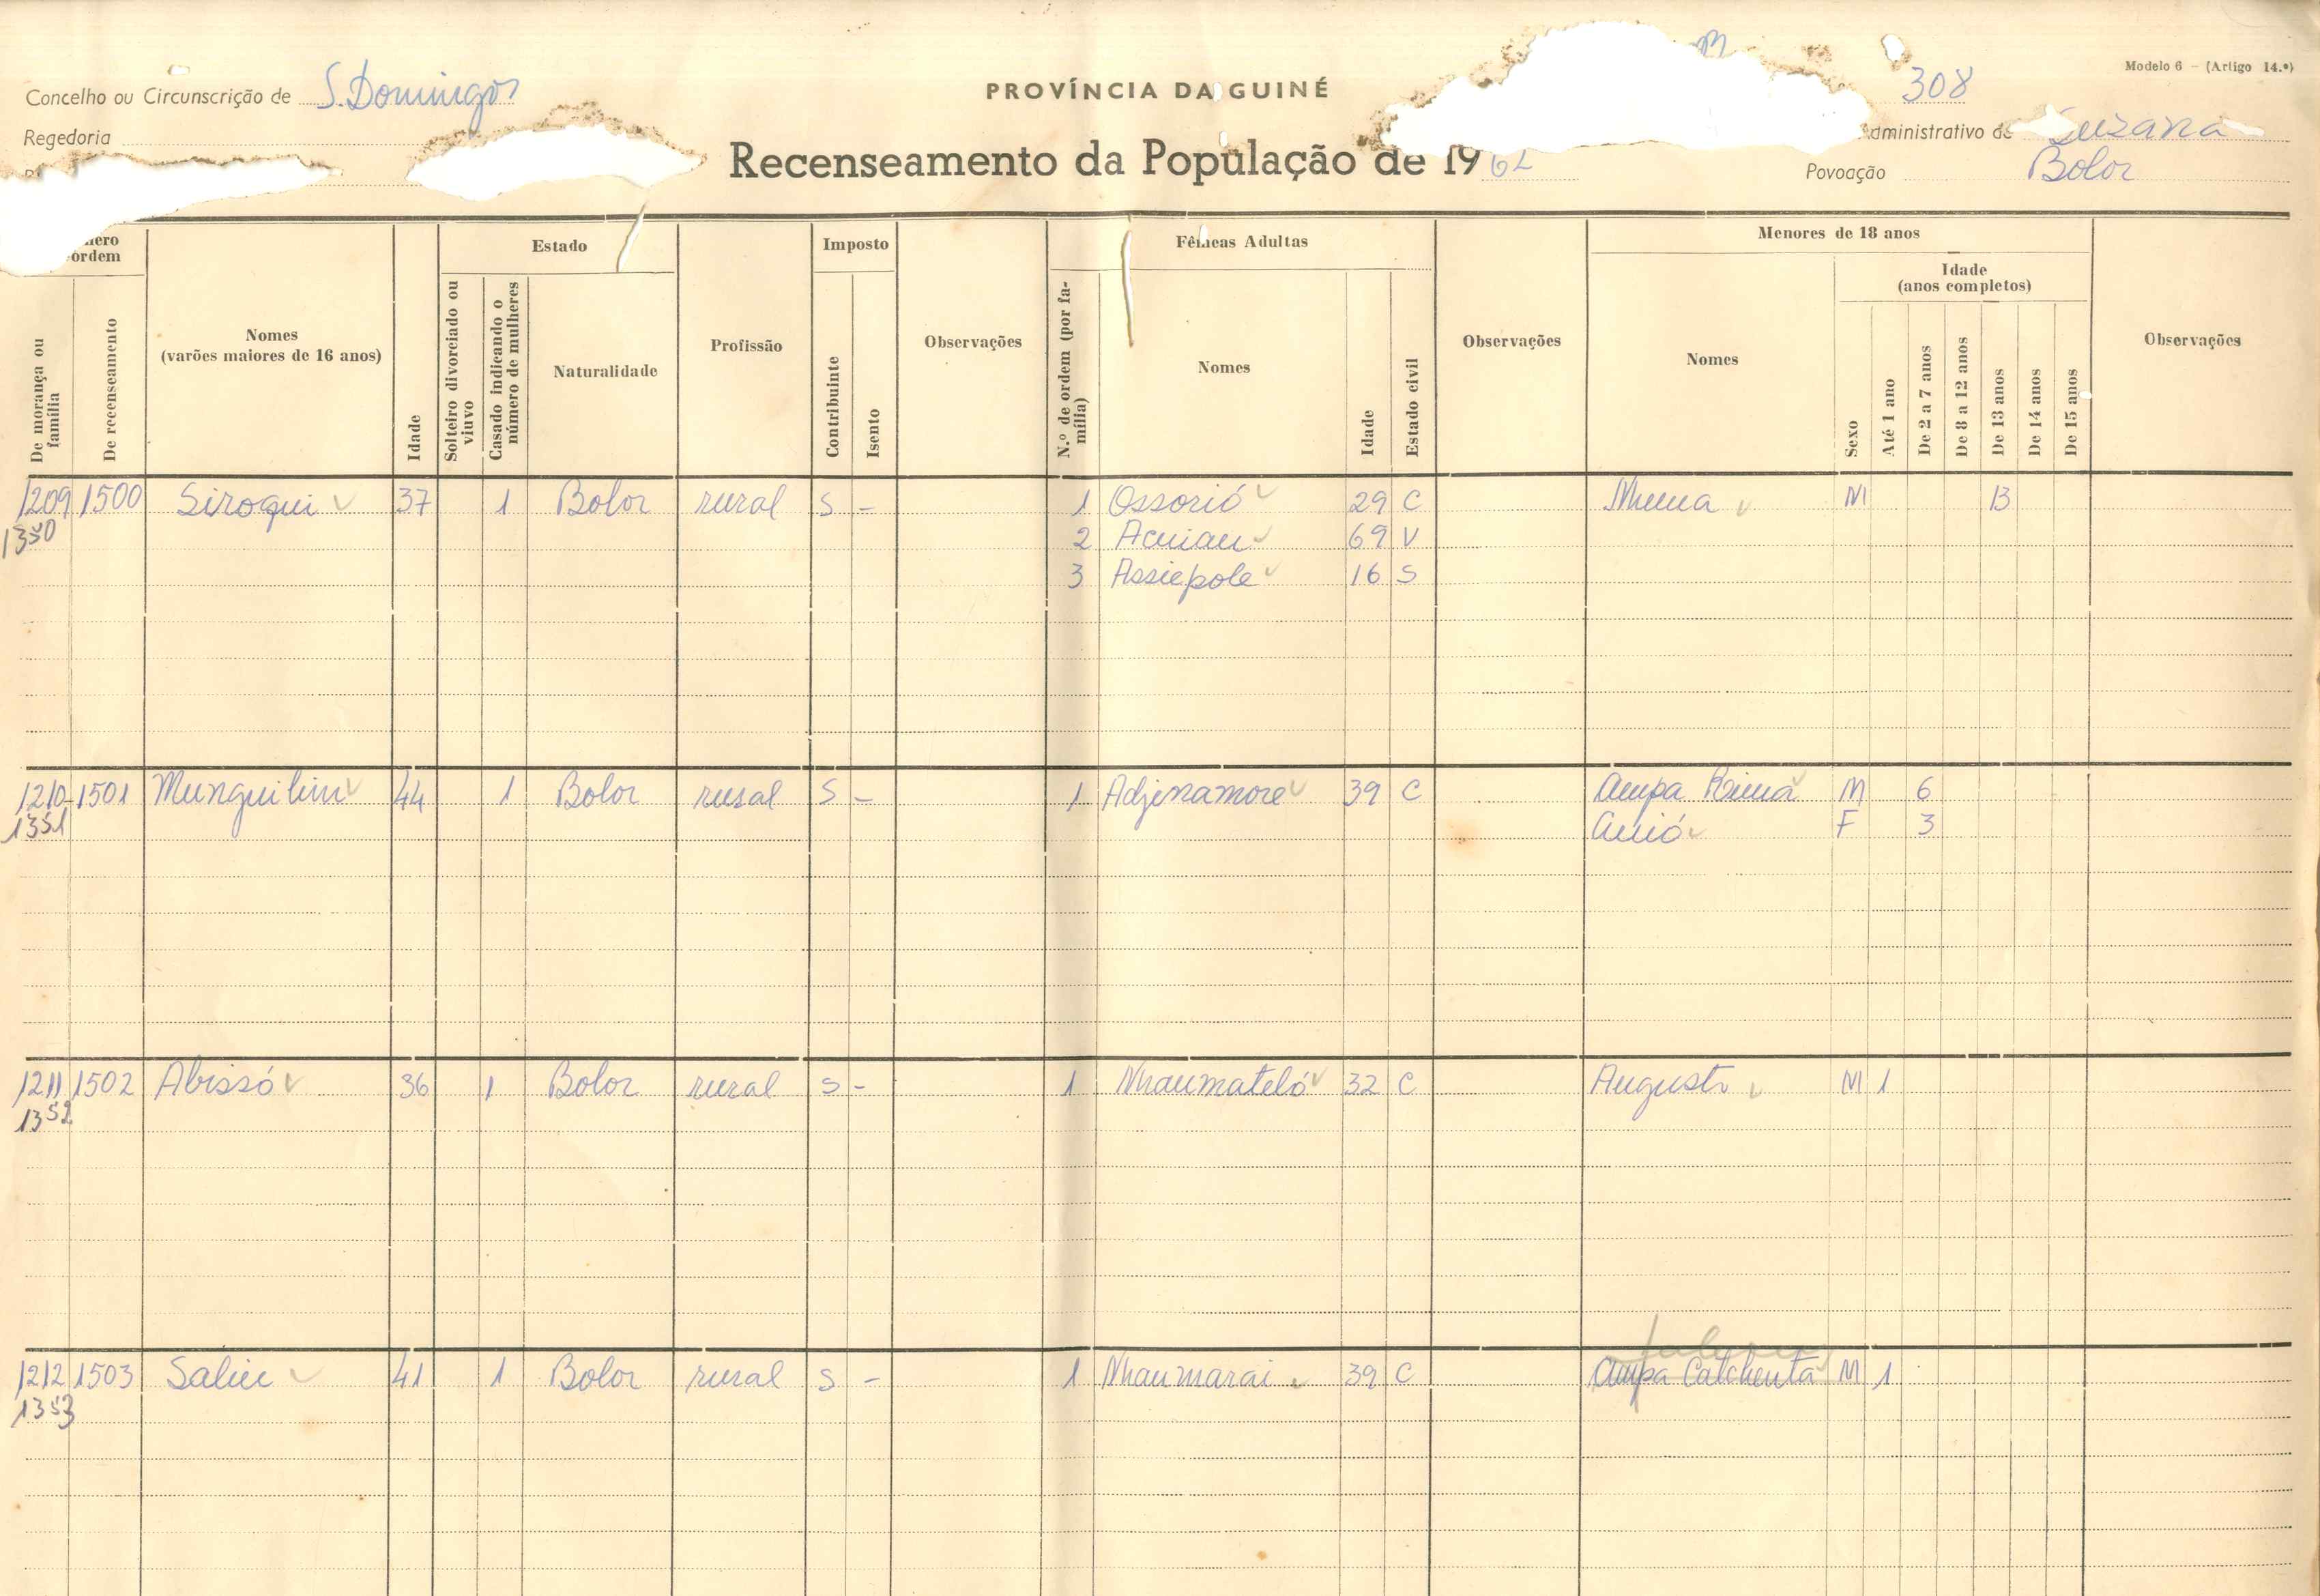 Modelo 6 - (Artigo 14.º)
Concelho ou Circunscrição de S. Domingos
PROVÍNCIA DA GUINÉ
308
Regedoria
Recenseamento da População de 1962
Administrativo de Suzana
Povoação Bolor
Número ordem
Nomes (varões maiores de 16 anos)
Idade
Estado
Profissão
Imposto
Observações
Fêmeas Adultas
Observações
Menores de 18 anos
Observações
De morança ou família
De recenseamento
Solteiro divorciado ou viuvo
Casado indicando o número de mulheres
Naturalidade
Contribuinte
Isento
N.º de ordem (por família)
Nomes
Idade
Estado civil
Nomes
Sexo
Idade (anos completos)
Até 1 ano
De 2 a 7 anos
De 8 a 12 anos
De 13 anos
De 14 anos
De 15 anos
1209 1500 Siroqui 37 1 Bolor rural S - 1 Ossorió 29 C M 13
1350 2 69 V
3 Assiepole 16 S
1210 1501 44 1 Bolor rural S - 1 Adjenamore 39 C M 6
1351 F 3
1211 1502 Abissó 36 1 Bolor rural S - 1 Nhaumateló 32 C Augusto M 1
1352
1212 1503 Saliu 41 1 Bolor rural S - 1 Nhaumarai 39 C M 1
1353